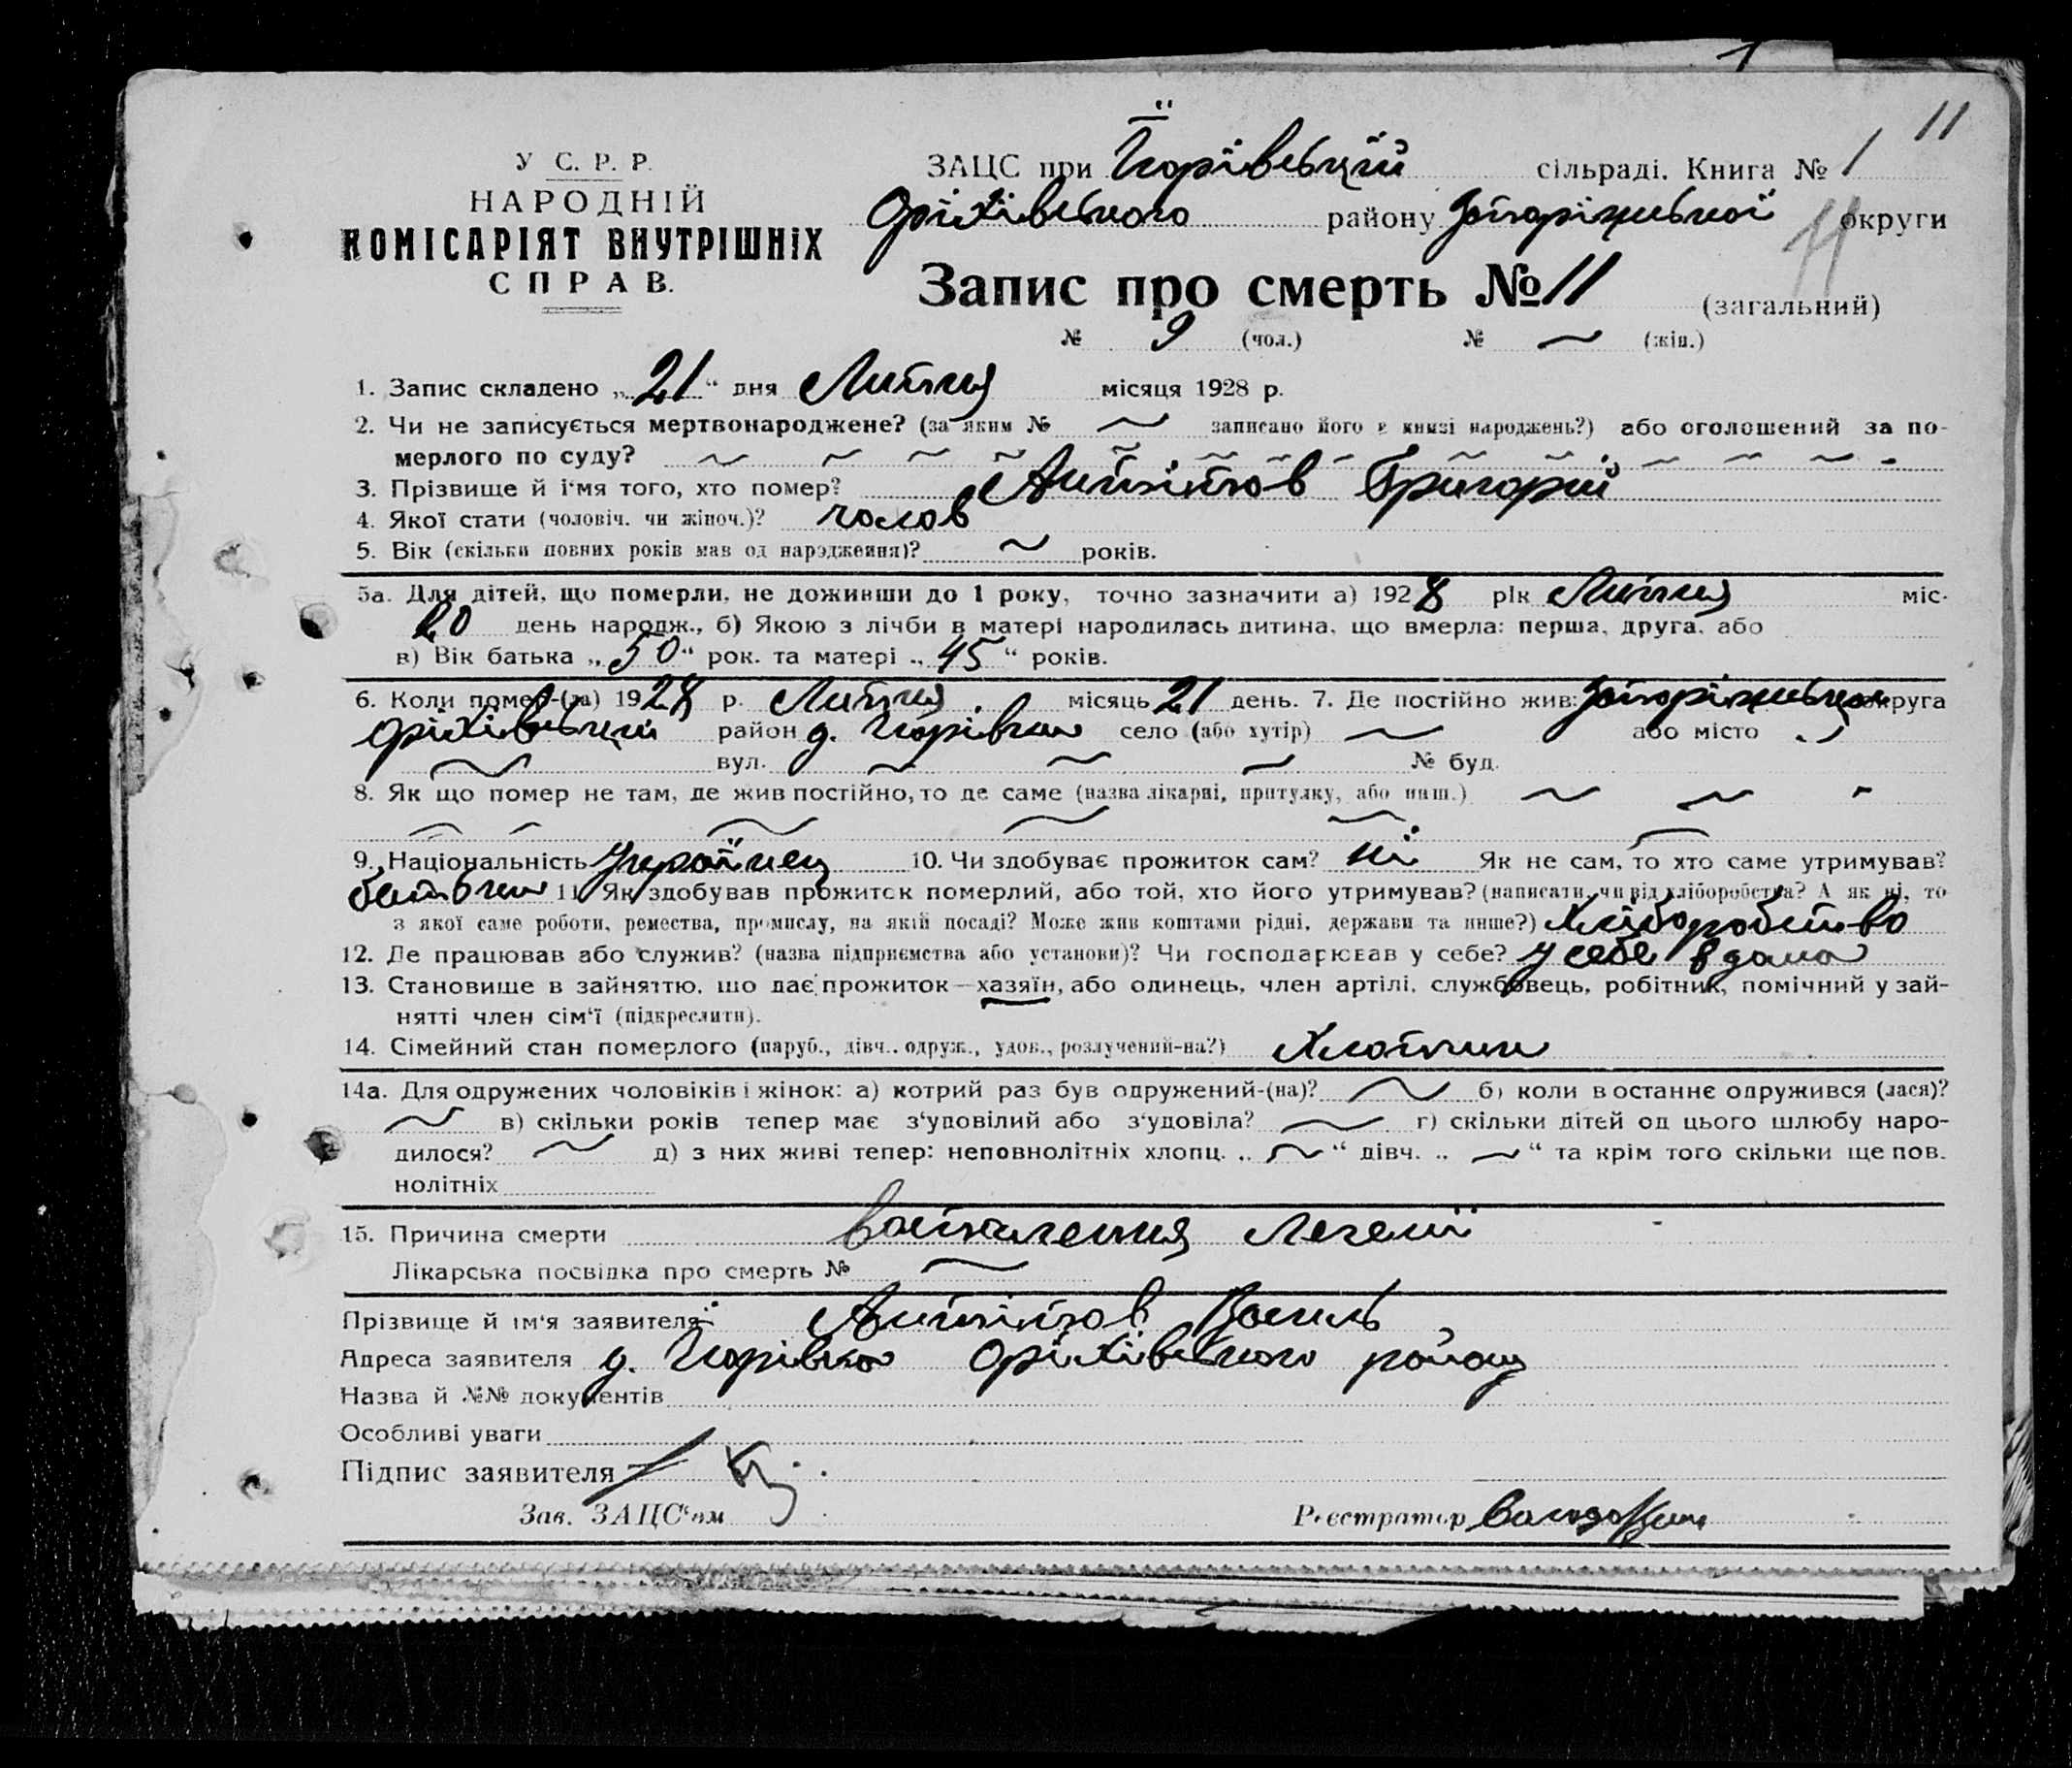 11
У С. Р. Р.
НАРОДНІЙ
КОМІСАРІЯТ ВНУТРІШНІХ
СПРАВ.
ЗАЦС при сільраді. Книга № 1
Оріхівського району Запоріжської округи
11
Запис про смерть № 11 (загальний)
№ 9 (чол.) № ~ (жін.)
1. Запис складено „21“ дня Липня місяця 1928 р.
2. Чи не записується мертвонароджене? (за яким № ~ записано його в книзі народжень?) або оголошений за по-
мерлого по суду? ~ ~ ~ ~ ~ ~ ~ ~ ~ ~ ~ ~ ~
3. Прізвище й і'мя того, хто помер? Антіпов Григорій
4. Якої стати (чоловіч. чи жіноч.)? чолов
5. Вік (скільки повних років мав од народження)? ~ років.
5а. Для дітей, що померли, не доживши до 1 року, точно зазначити а) 1928 рік Липня міс.
20 день народж., б) Якою з лічби в матері народилась дитина, що вмерла: перша, друга, або
в) Вік батька „50“ рок. та матері „45“ років.
6. Коли помер-(ла) 1928 р. Липня місяць 21 день. 7. Де постійно жив: Запоріжська округа
Оріхівський район д. село (або хутір) ~ або місто ~
~ вул. ~ ~ ~ № буд.
8. Як що помер не там, де жив постійно, то де саме (назва лікарні, притулку, або инш.) ~ ~ ~
~ ~ ~ ~ ~ ~
9. Національність Українец 10. Чи здобуває прожиток сам? ні Як не сам, то хто саме утримував?
батьки 11. Як здобував прожиток померлий, або той, хто його утримував? (написати, чи від хліборобства? А як ні, то
з якої саме роботи, ремества, промислу, на якій посаді? Може жив коштами рідні, держави та инше?) Хліборобство
12. Де працював або служив? (назва підприємства або установи)? Чи господарював у себе? у себе вдома
13. Становище в зайняттю, що дає прожиток—хазяїн, або одинець, член артілі, службовець, робітник, помічний у зай-
нятті член сім'ї (підкреслити).
14. Сімейний стан померлого (паруб., дівч., одруж., удов., розлучений-на?) Хлопчик
14а. Для одружених чоловіків і жінок: а) котрий раз був одружений-(на)? ~ б) коли востаннє одружився (лася)?
~ в) скільки років тепер має з'удовілий або з'удовіла? ~ г) скільки дітей од цього шлюбу наро-
дилося? ~ д) з них живі тепер: неповнолітніх хлопц. „~“ дівч. „~“ та крім того скільки ще пов.
нолітніх
15. Причина смерти Воспаления Легенії
Лікарська посвідка про смерть № ~
Прізвище й ім'я заявителя Антіпов Василь
Адреса заявителя д. Оріхівського району
Назва й №№ документів
Особливі уваги
Підпис заявителя
Зав. ЗАЦС'ом Реєстратор